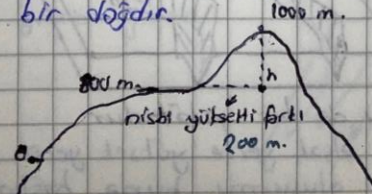 bir doğdır.
1000 m.
800 m.
h
nisbi yükselti farkı
200 m.
0